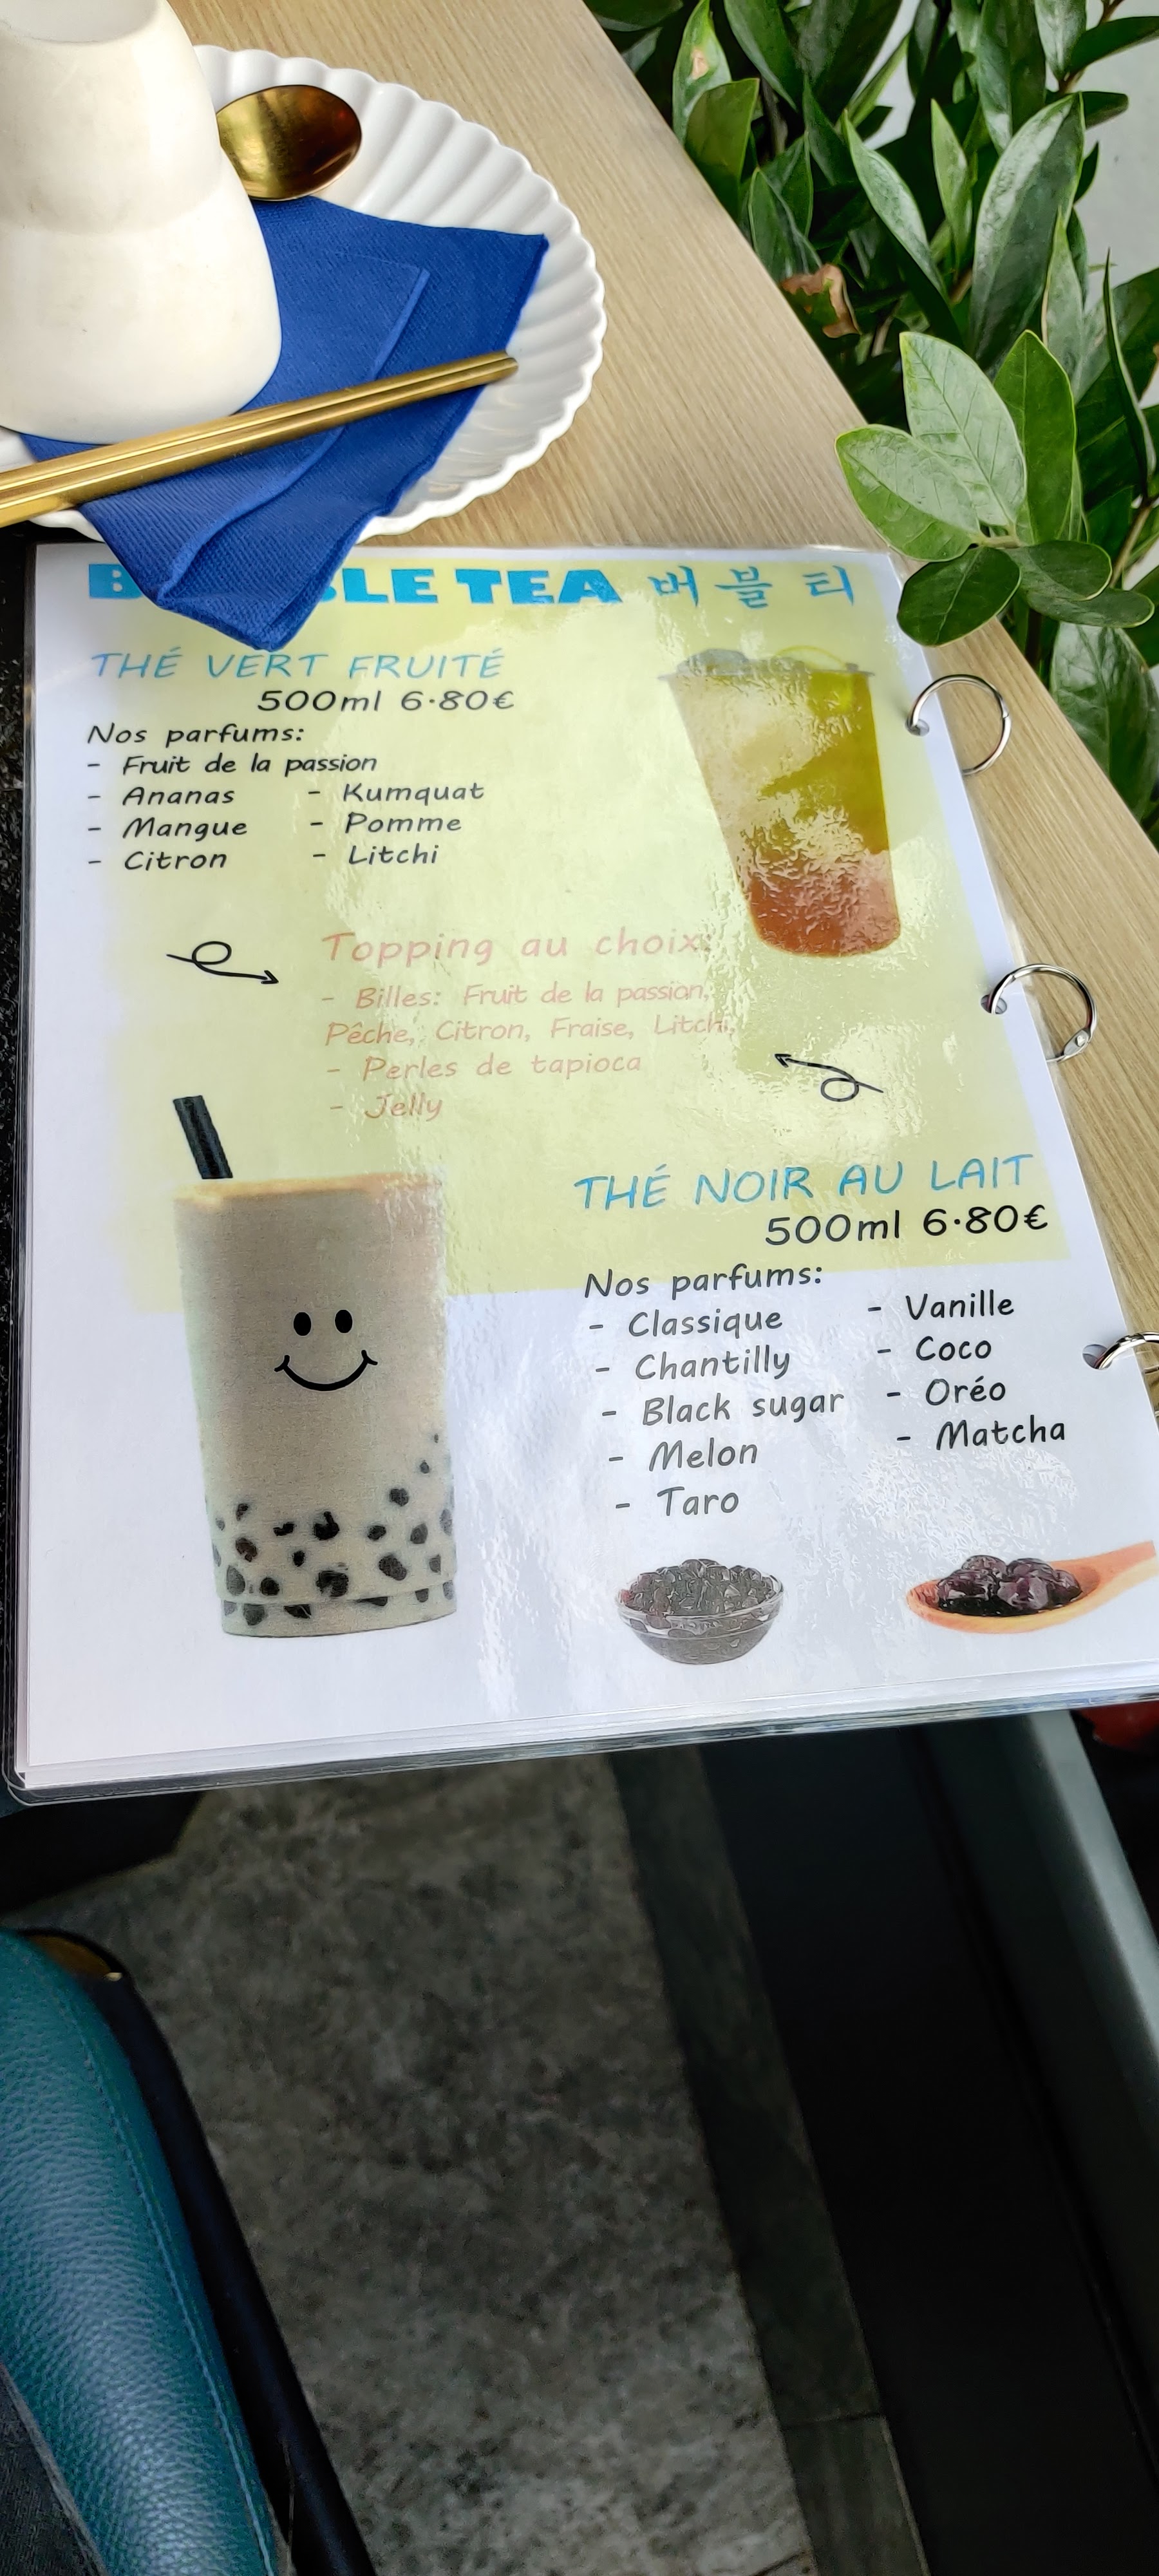 TEA 버블 티
THÉ VERT FRUITÉ
500ml 6.80€
Nos parfums:
- Fruit de la passion
- Ananas - Kumquat
- Mangue - Pomme
- Citron - Litchi
Topping au choix:
- Billes: Fruit de la passion,
Pêche, Citron, Fraise, Litchi,
- Perles de tapioca
- Jelly
THÉ NOIR AU LAIT
500ml 6.80€
Nos parfums:
- Classique - Vanille
- Chantilly - Coco
- Black sugar - Oréo
- Melon - Matcha
- Taro